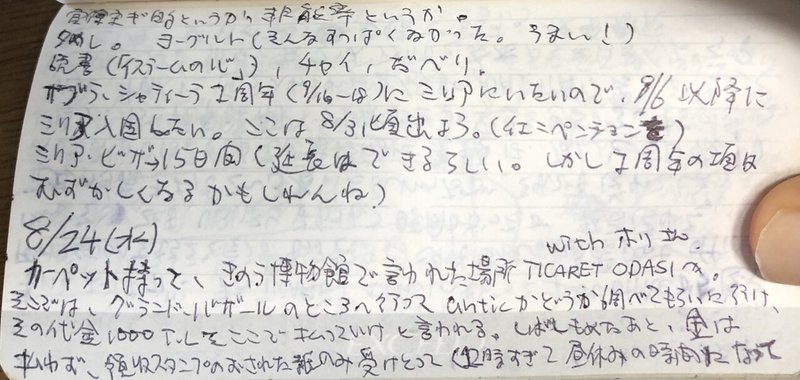 官僚主ギ的というか非能率というか。
夕めし。ヨーグルト(そんなすっぱくなかった。うまい!)
読書(「イスラームの心」)、チャイ、だべり。
サブラ・シャティーラ2周年(9/16-18)にシリアにいたいので、9/6以降に
シリア入国したい。ここは8/31頃出よう。(イエニペンション)
シリア・ビザ15日間(延長はできるらしい。しかし2周年の頃は
むずかしくなるかもしれんね)
8/24(水) with ホリ
カーペット持って、きのう博物館で言われた場所TICARET ODASIへ。
そこでは、グランドバザールのところへ行ってanticかどうか調べてもらいに行け、
その代金1000T.L.をここで払っていけと言われる。しばしもめたあと、金は
払わず、領収スタンプのおされた紙のみ受けとって(12時すぎて昼休みの時間になって